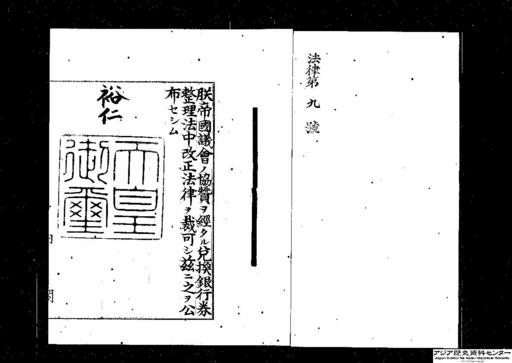 法律第九號
朕帝國議會ノ協贊ヲ經タル兌換銀行券
整理法中改正法律ヲ裁可シ茲ニ之ヲ公
布セシム
裕仁
天皇
御璽
アジア歴史資料センター
Japan Center for Asian Historical Records